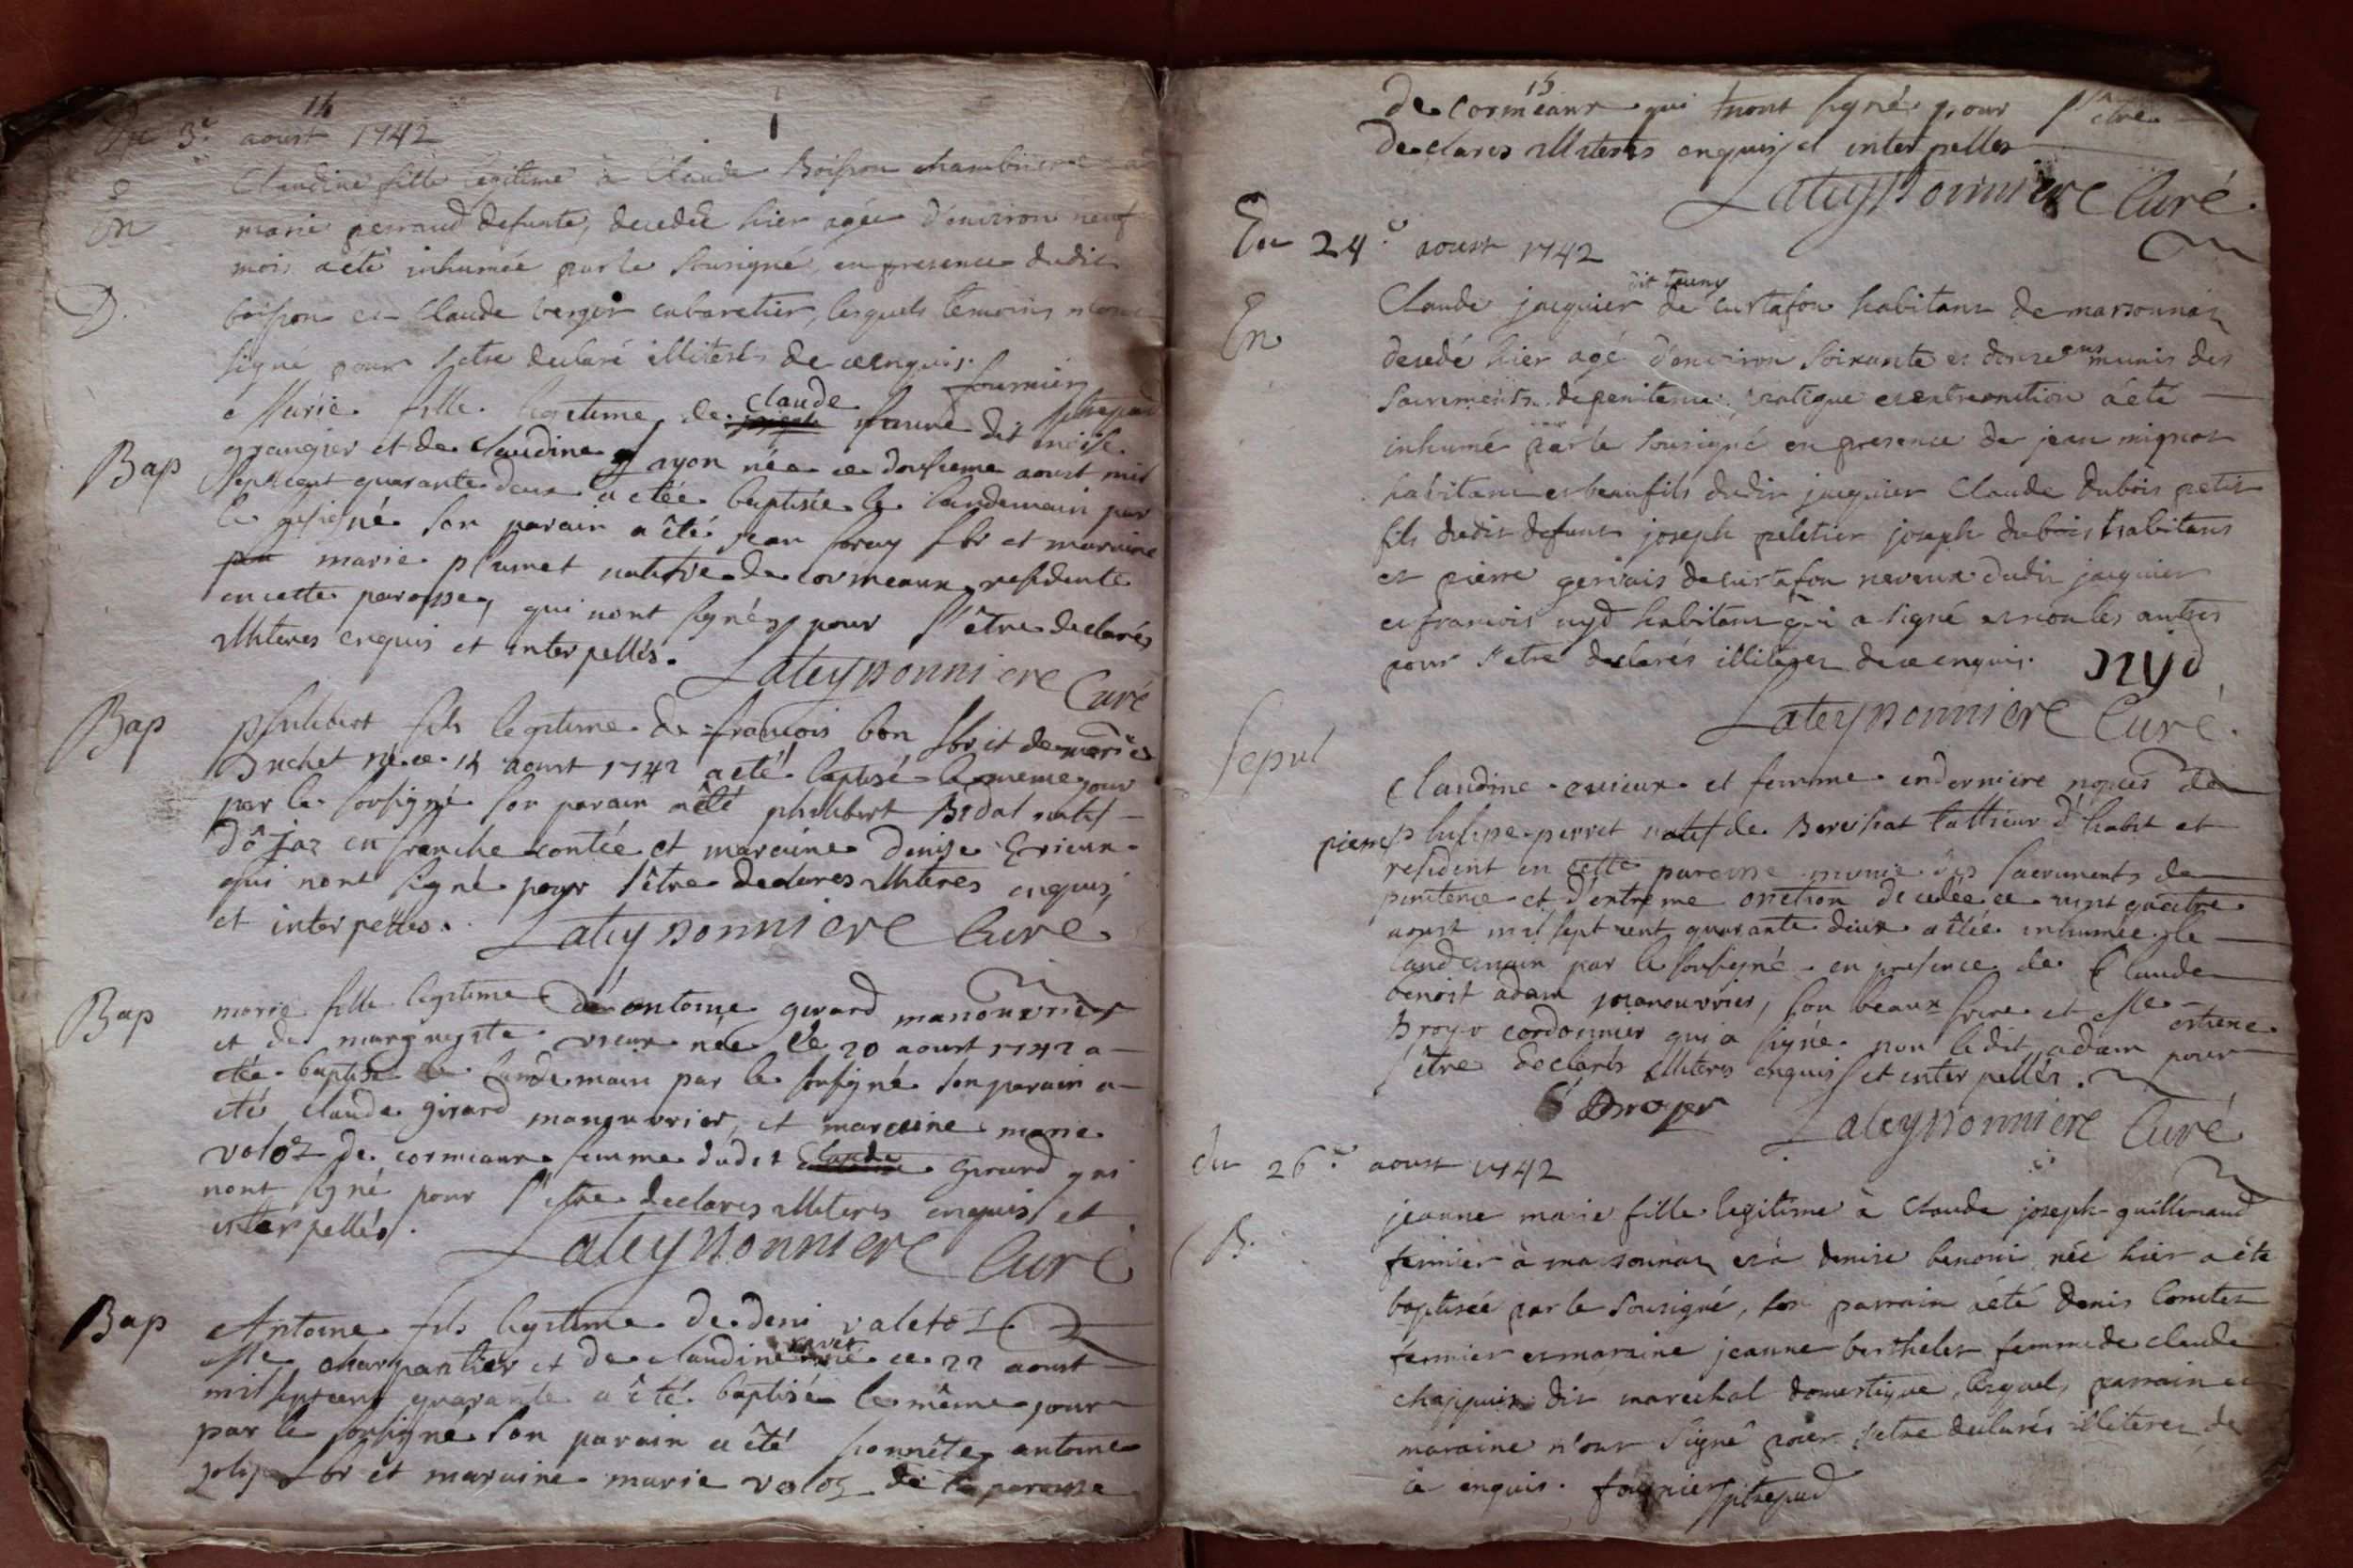 14
Du 3e aoust 1742
Claudine fille legitime à Claude Boisson chambriere
En
marie perraud defunte, decedée hier agée d'environ neuf
mois a eté inhumée par le sousigné, en presence dudit
D.
boisson et Claude berger cabaretier, lesquels temoins n'ont
signé pour s'etre declaré illiterés de ce enquis.
fournier
Marie fille legitime de claude dit
Bap
grangier et de claudine Layon née ce dousieme aoust mil
sept cent quarante deux a etée baptisée le landemain par
le sousigné son parain a êté jean lbr et maraine
marie plumet native de cormeaux residente
en cette paroisse, qui nont signés pour s'être declarés
illiteres enquis et interpellés.
Lateyssonniere Curé
Bap
philibert fils legitime de françois bon lbr et de marie
Buchet né ce 14 aoust 1742 a eté baptisé le meme jour
par le sousigné son parain a êté philibert Bidal natif
en franche contée et maraine Denise Erieux
qui nont signé pour s'être declares illiteres enquis,
et interpellés. Lateyssonniere Curé
Bap
marie fille legitime de antoine girard manouvrier
et de margueritte vieux née le 20 aoust 1742 a
été baptisé le landemain par le sousigné son parain a
eté claude girard manouvrier, et maraine marie
voloz de cormeaux femme dudit Claude Girard qui
nont signé pour s'etre declares illiteres enquis, et
interpellés.
Lateyssonniere Curé
Bap
Antoine fils legitime de deni valetoz
Me charpantier et de claudine né ce 22 aoust
mil septcent quarante a été baptisé le même jour
par le sousigné son parain a été honnête antoine
lbr et maraine marie voloz de la paroisse
15
de cormeaux qui n'ont signé pour s'etre
declares illiteres enquis et interpelles
Lateyssonniere Curé.
Du 24e aoust 1742
dit
En
Claude jacquier de curtafon habitant de marsonnas
decedé hier agé d'environ soixante et douze ans munis des
sacrements de penitence, viatique et extreonction a eté
inhumé par le sousigné en presence de jean mignot
habitant et beaufils dudit jacquier Claude dubois petit
fils dudit defunt joseph peletier joseph dubois habitans
et pierre gervais de curtafon neveux dudit jacquier
et francois nyd habitant qui a signé et non les autres
pour s'etre declarés illiteres de ce enquis. nyd
Lateyssonniere Curé.
Sepul
Claudine erieux et femme en derniere nopces de
pierre philipe perret natif de Bereisiat tallieur d'habit et
resident en cette paroisse munie des sacrements de
penitence et d'extreme onction decedée ce vint quatre
aoust mil sept cent quarante deux a êtée inhumée le
landemain par le sousigné en presence de Claude
benoist adam manouvrier, son beaux frere et Me estiene
Broyer cordonnier qui a signé non ledit adam pour
s'être declarés illiteres enquis et interpellés.
E Broyer
Lateyssonniere Curé
du 26e aoust 1742
B.
jeanne marie fille legitime à Claude joseph guillemaud
fermier à marsonnas et à denise benoni née hier a été
baptisée par le sousigné, son parrain a été denis Comtet
fermier et maraine jeanne berthelet femme de claude
chapuis dit marechal domestique, lesquels parrain et
maraine n'ont signé pour s'etre declarés illiteres de
ce enquis. fournier